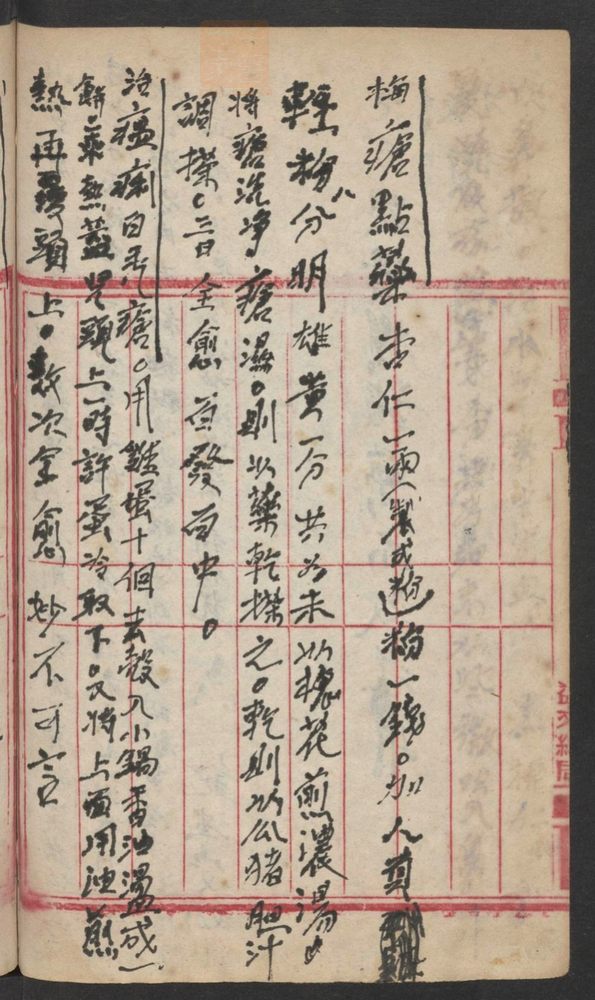 梅瘡點藥 杏仁一兩(製成粉)粉一錢。加人真
輕粉八分明雄黃一分共為末以槐花煎濃湯
將瘡洗净瘡濕。則以藥乾搽之。乾則以瓜猪胆汁
調搽。三日全愈百發百中。
治瘟痢白禿瘡。用雞蛋十個去殼入小鍋香油溫成一
餅。乘熱蓋患頭上一時許蛋冷取下又將上面用油煎
熱再覆頭上。數次全愈妙不可言